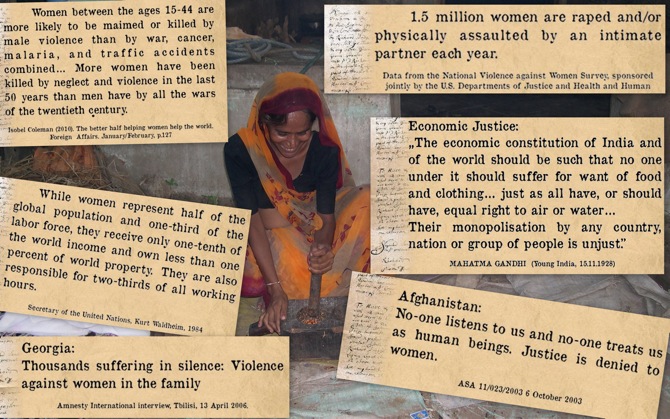 Women between the ages 15-44 are
more likely to be maimed or killed by
male violence than by war, cancer,
malaria, and traffic accidents
combined... More women have been
killed by neglect and violence in the last
50 years than men have by all the wars
of the twentieth century.
Isobel Coleman (2010). The better half helping women help the world.
Foreign Affairs, January/February, p.127
1.5 million women are raped and/or
physically assaulted by an intimate
partner each year.
Data from the National Violence against Women Survey, sponsored
jointly by the U.S. Departments of Justice and Health and Human
Economic Justice:
„The economic constitution of India and
of the world should be such that no one
under it should suffer for want of food
and clothing... just as all have, or should
have, equal right to air or water...
Their monopolisation by any country,
nation or group of people is unjust.”
MAHATMA GANDHI (Young India, 15.11.1928)
While women represent half of the
global population and one-third of the
labor force, they receive only one-tenth of
the world income and own less than one
percent of world property. They are also
responsible for two-thirds of all working
hours.
Secretary of the United Nations, Kurt Waldheim, 1984
Afghanistan:
No-one listens to us and no-one treats us
as human beings. Justice is denied to
women.
ASA 11/023/2003 6 October 2003
Georgia:
Thousands suffering in silence: Violence
against women in the family
Amnesty International interview, Tbilisi, 13 April 2006.